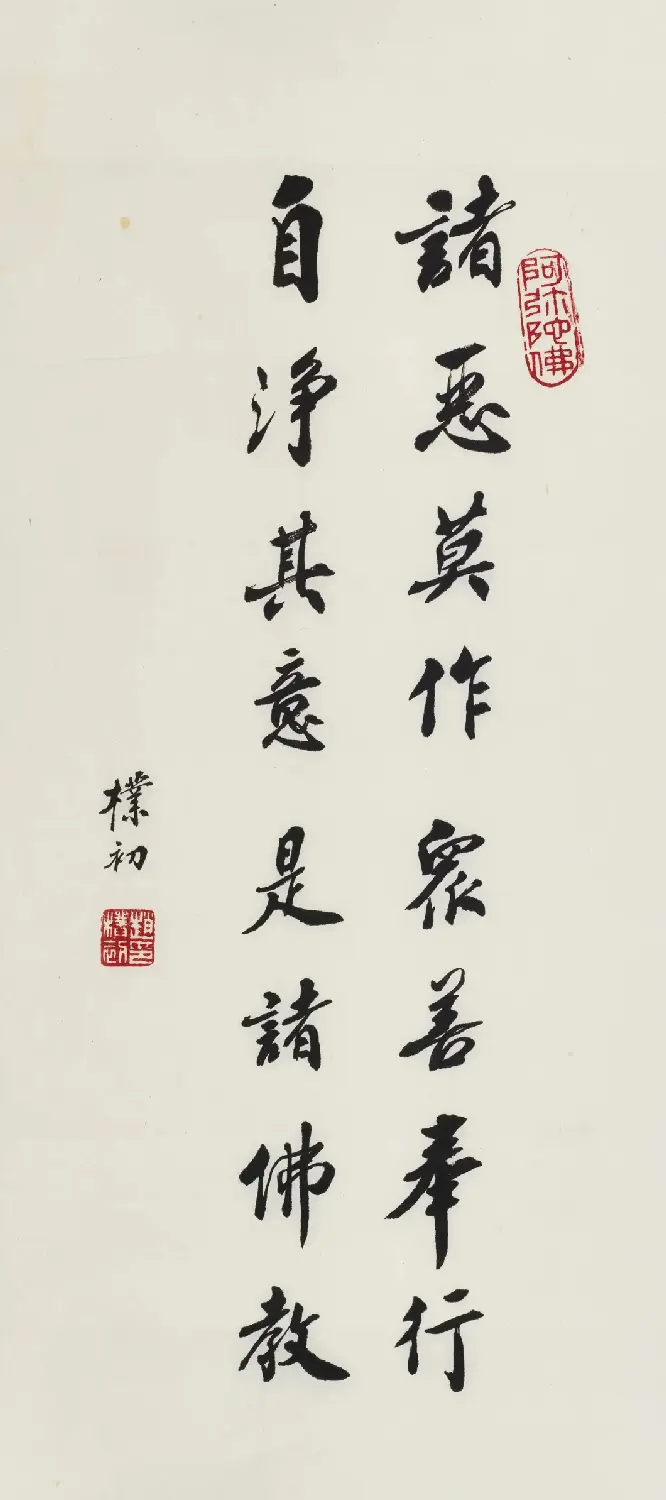 阿弥陀佛
諸惡莫作衆善奉行
自淨其意是諸佛教
樸初
趙樸初印